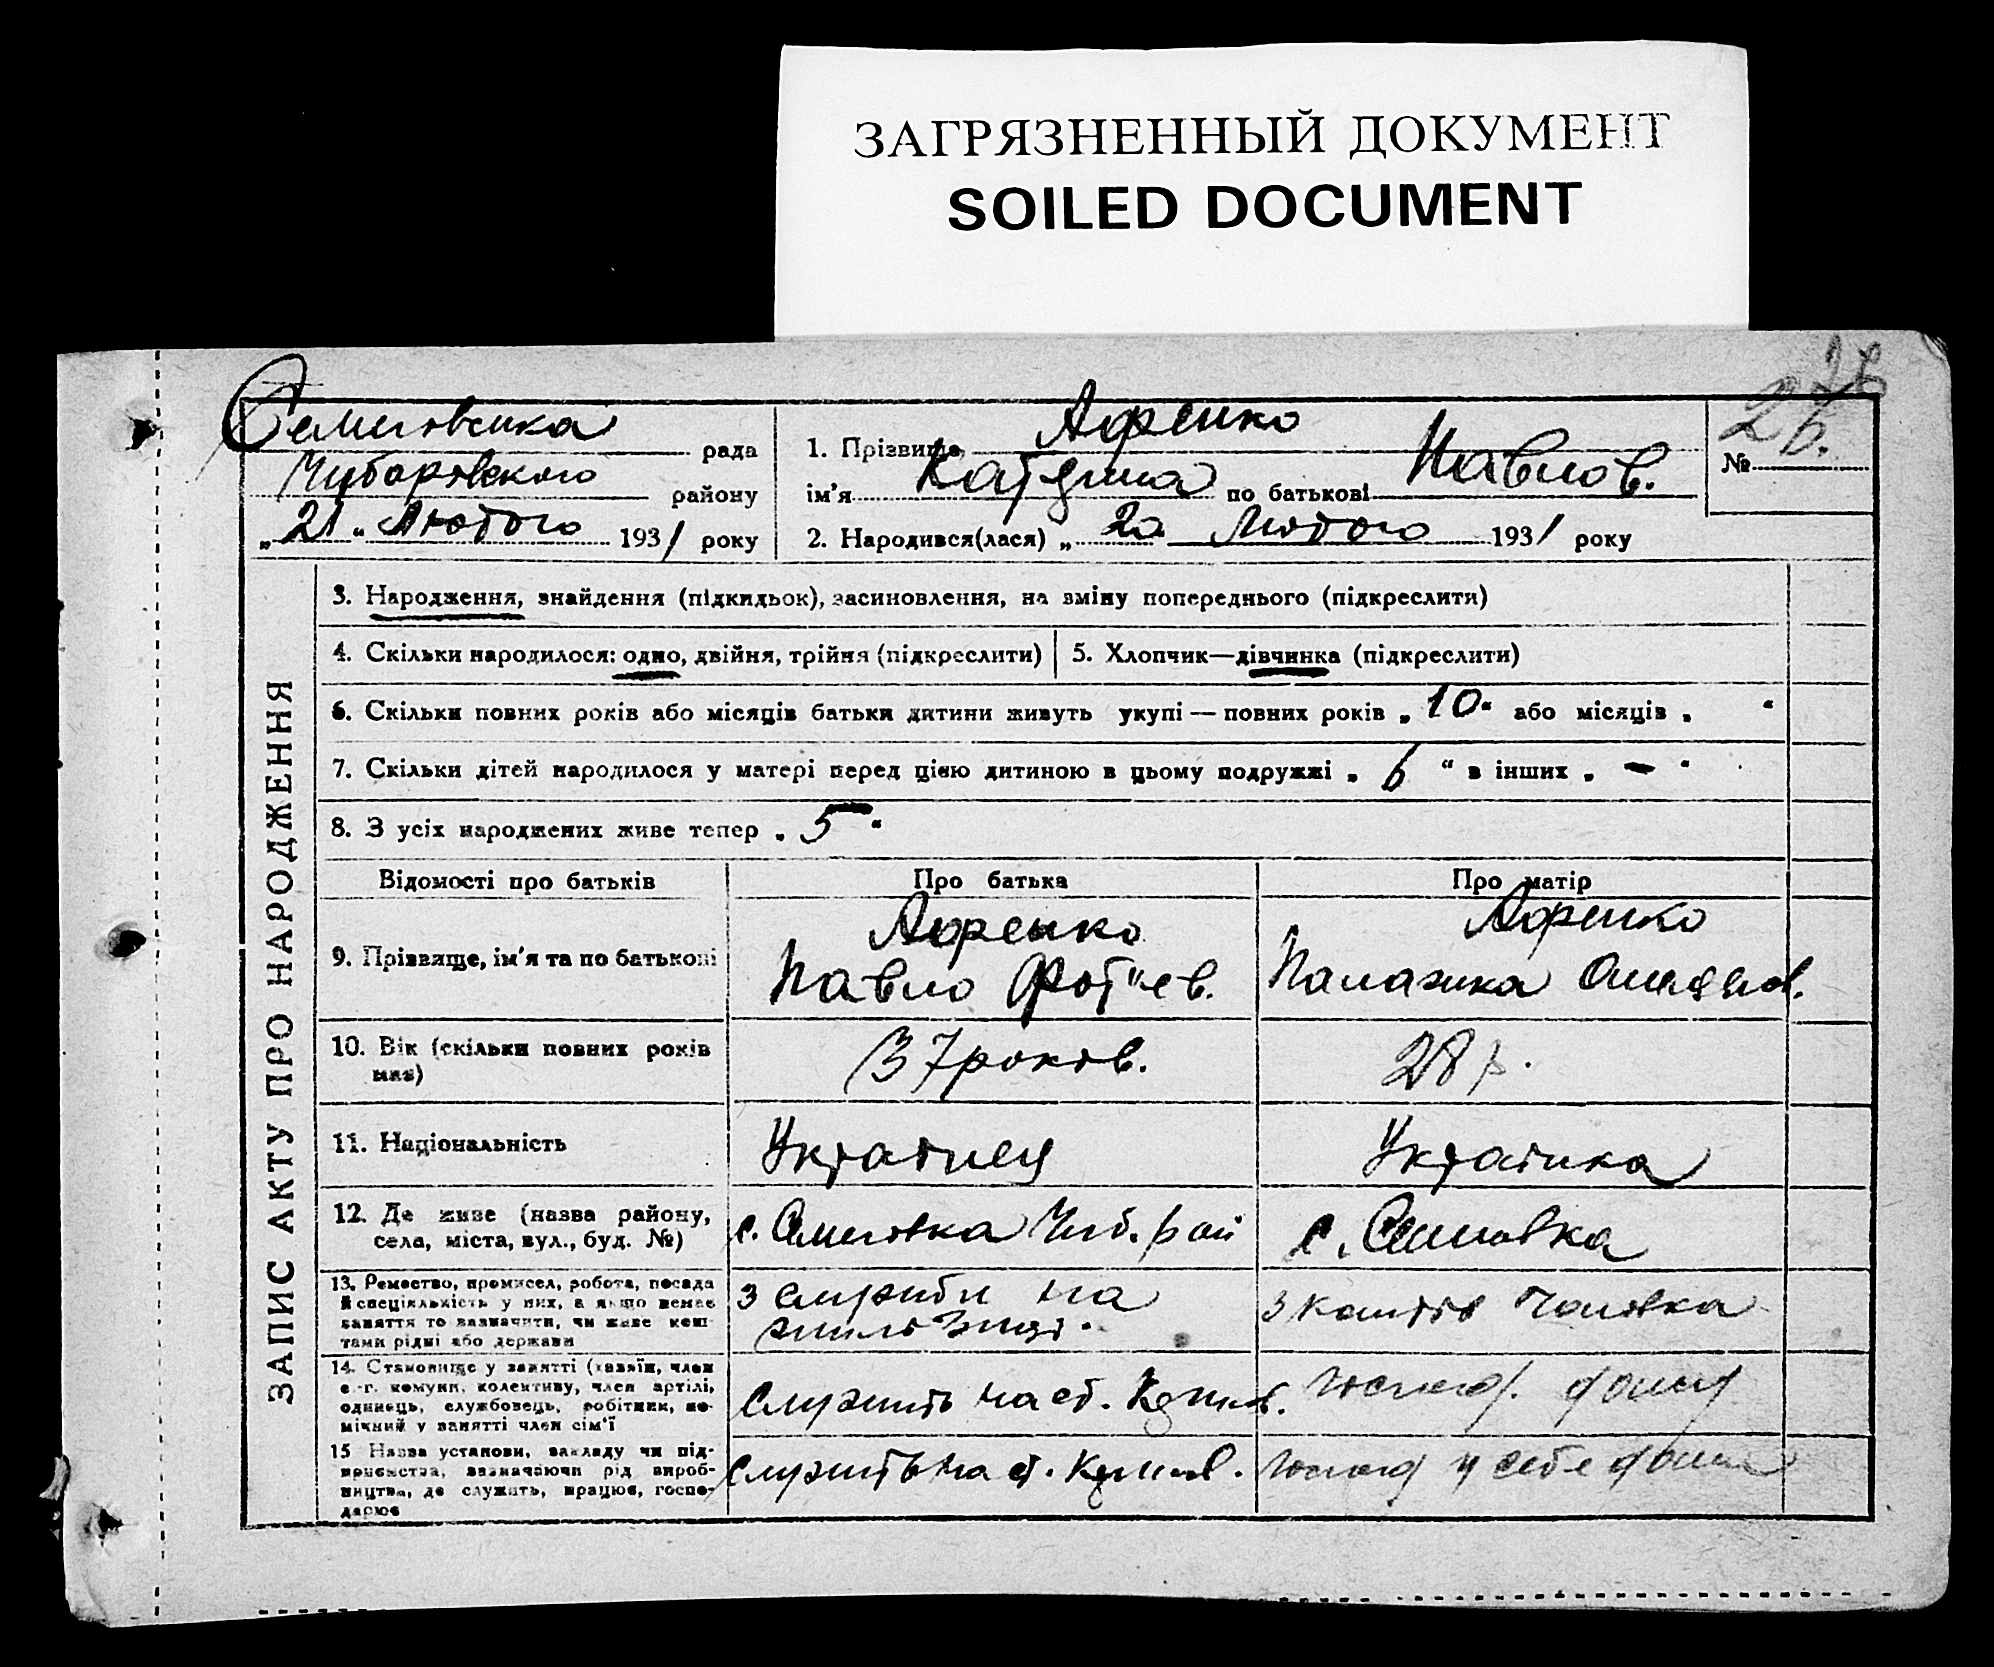 ЗАГРЯЗНЕННЫЙ ДОКУМЕНТ
SOILED DOCUMENT
26
26.
№
Семеновська рада
Чубаровского району
„21“ Лютого 1931 року
1. Прізвище, Афенко
ім'я Катерина по батькові Павлов.
2. Народився(лася) „20 Лютого 1931 року
ЗАПИС АКТУ ПРО НАРОДЖЕННЯ
3. Народження, знайдення (підкидьок), засиновлення, на зміну попереднього (підкреслити)
4. Скільки народилося: одно, двійня, трійня (підкреслити)
5. Хлопчик—дівчинка (підкреслити)
6. Скільки повних років або місяців батьки дитини живуть укупі — повних років „10“ або місяців „ “
7. Скільки дітей народилося у матері перед цією дитиною в цьому подружжі „6“ в інших „—“
8. З усіх народжених живе тепер „5“
Відомості про батьків
Про батька
Про матір
9. Прізвище, ім'я та по батькові
Афенко
Павло Фотіев.
Афенко
Палажка
10. Вік (скільки повних років має)
37 років.
28 р.
11. Національність
Українец
Українка
12. Де живе (назва району,
села, міста, вул., буд. №)
с. Семеновка Чуб. рай
с. Семеновка
13. Ремество, промисел, робота, посада
й спеціяльність у них, а якщо немає
заняття то зазначити, чи живе кош-
тами рідні або держави
з служби на
з коштів Чоловка
14. Становище у занятті (хазяїн, член
с.-г. комуни, колективу, член артілі,
одинець, службовець, робітник, по-
мічний у занятті член сім'ї
Служить на ст.
Господ. дома
15 Назва установи, закладу чи під-
приємства, зазначаючи рід вироб-
ництва, де служить, працює, госпо-
дарює
служить на ст.
господ у себе дома